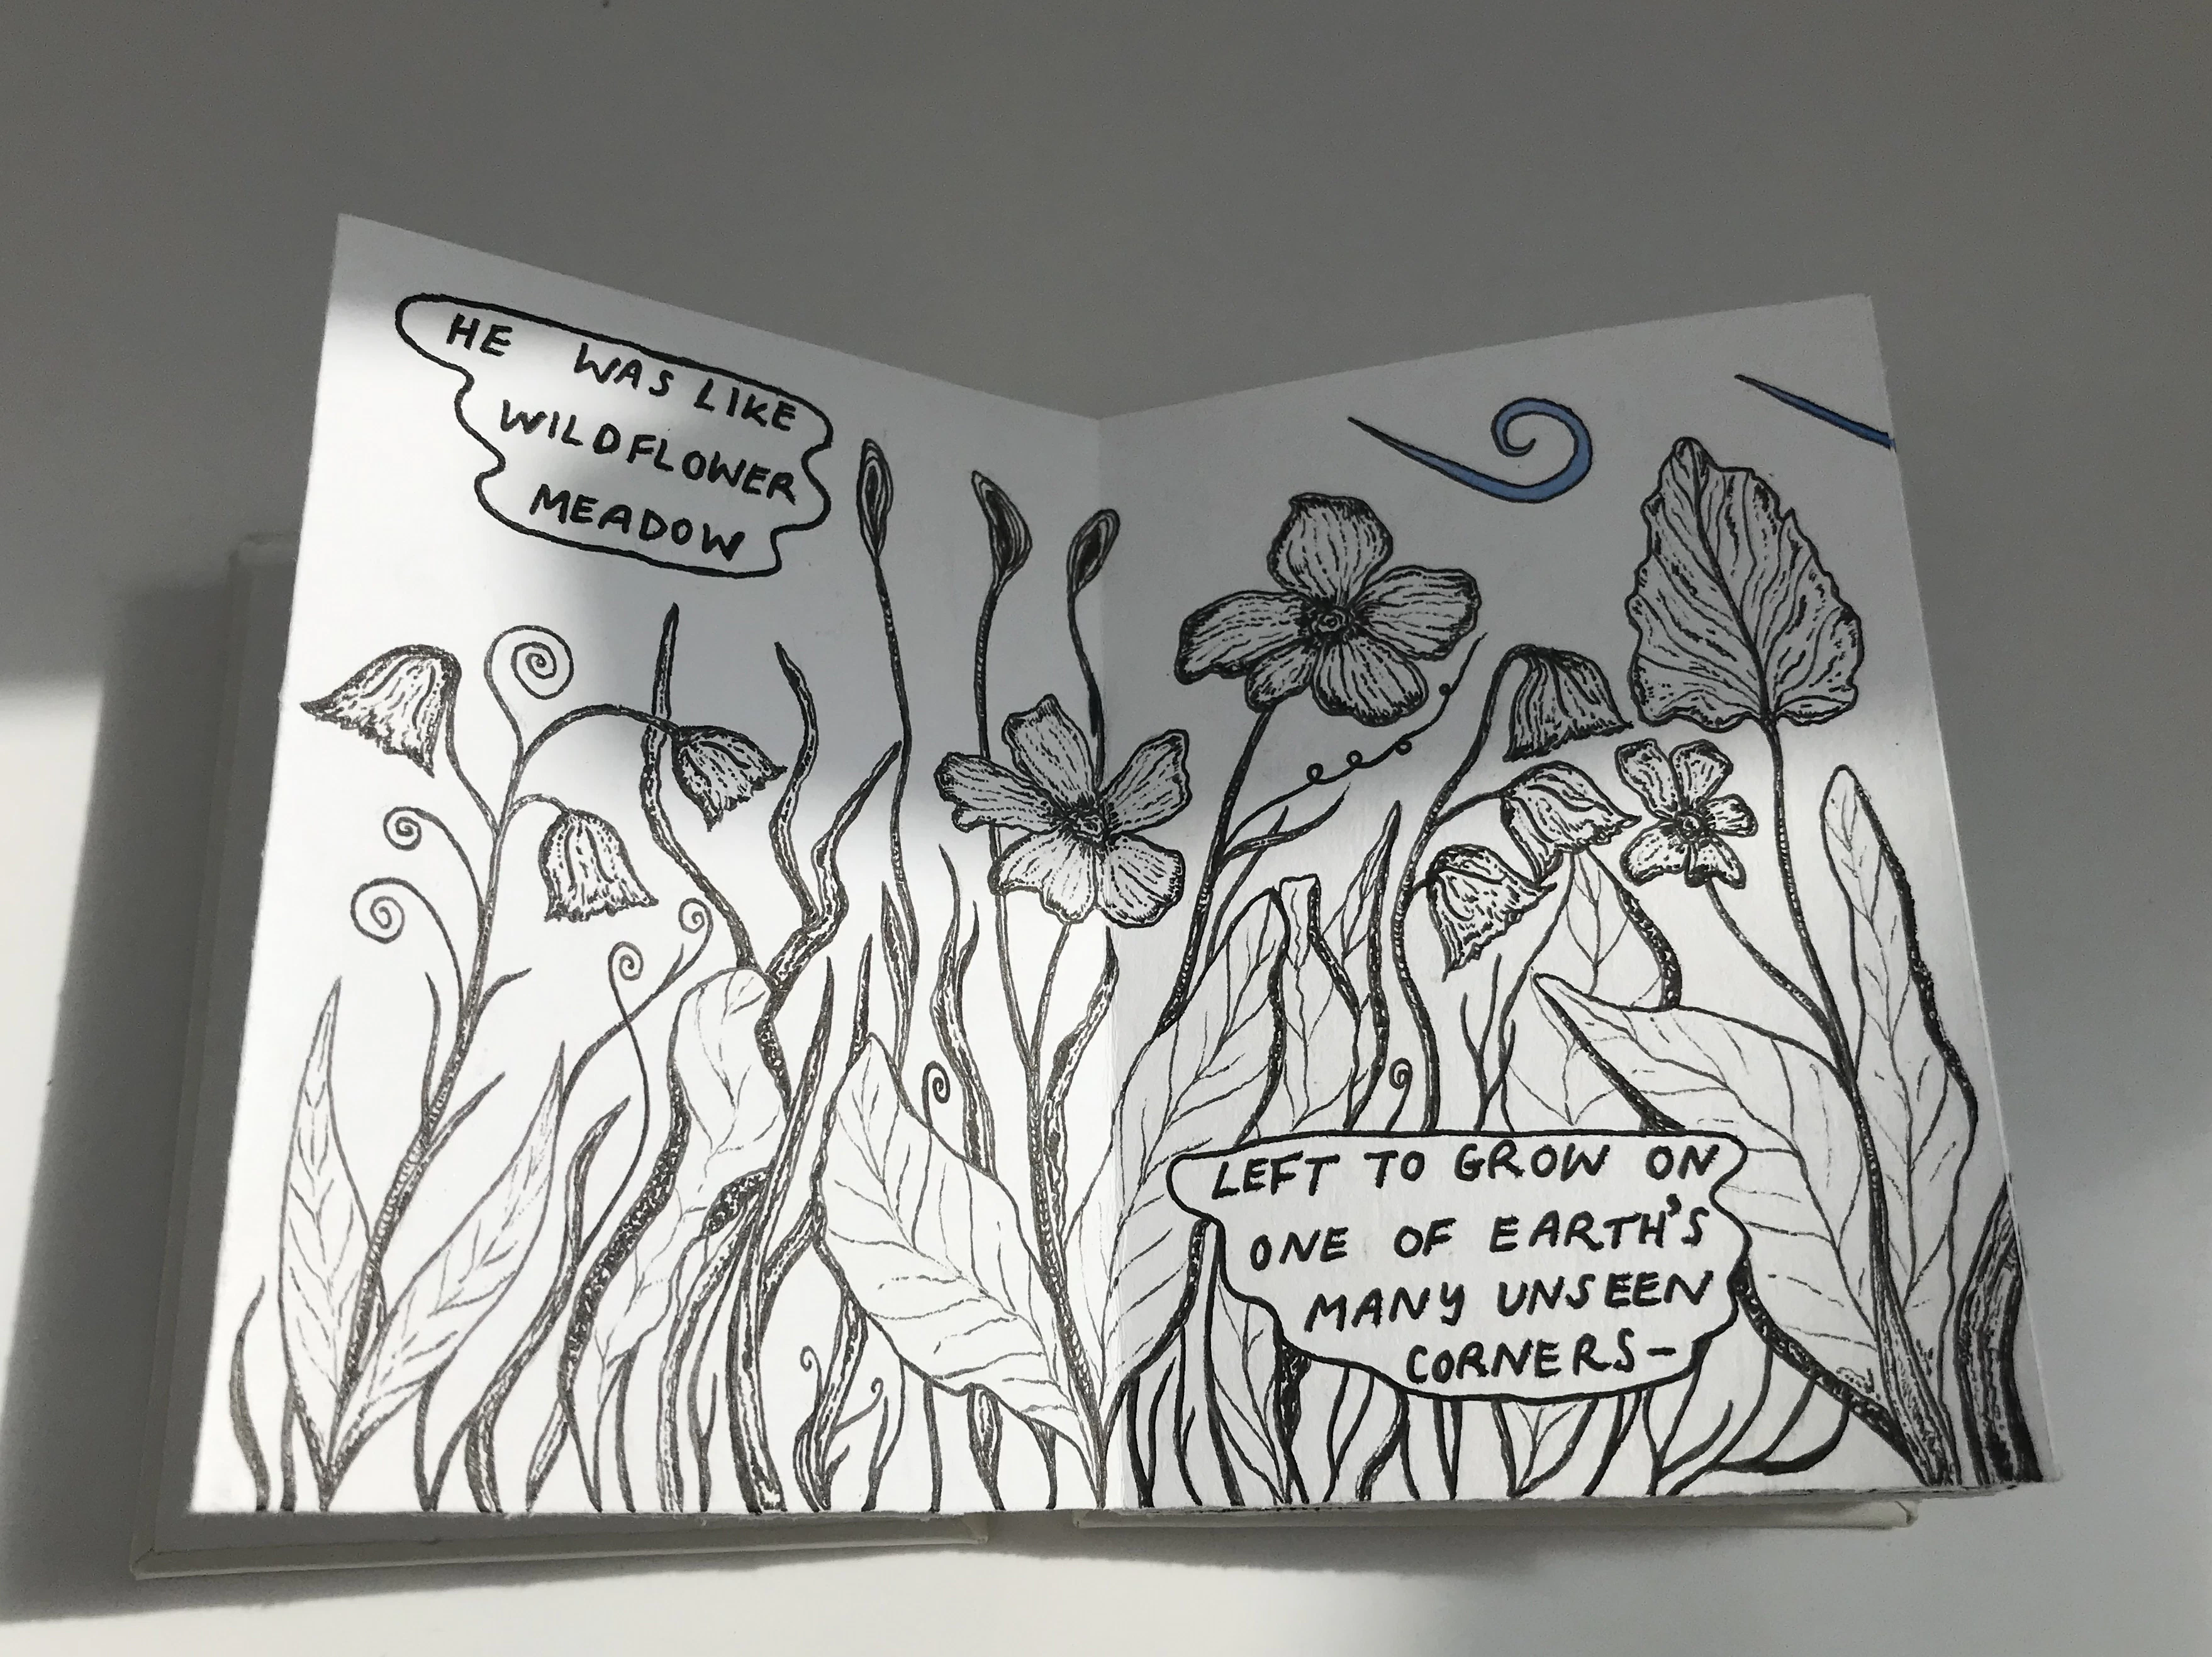 HE WAS LIKE
WILDFLOWER
MEADOW
LEFT TO GROW ON
ONE OF EARTH'S
MANY UNSEEN
CORNERS-